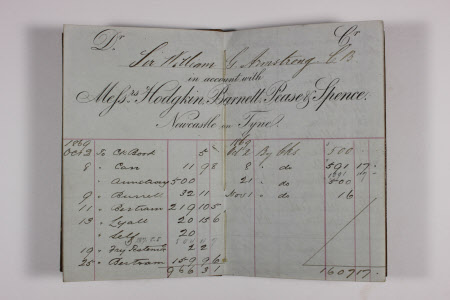 Dr Cr
Sir William G Armstrong CB
in account with
Messrs Hodgkin, Barnett, Pease & Spence.
Newcastle on Tyne.
1869
Octr 2 To Ck Book 5
8 " Carr 11 9 8
" Armstrong 500
9 " Burrell 32 11
11 " Bertram 219 10 5
13 " Lyall 20 15 6
" Self 20
19 "
25 " Bertram 159 9 6
966 3 1
1869
Oct 2 By Cks. 500
8 " do 591 17
21 " do 500
Nov 1 " do 16
1607 17